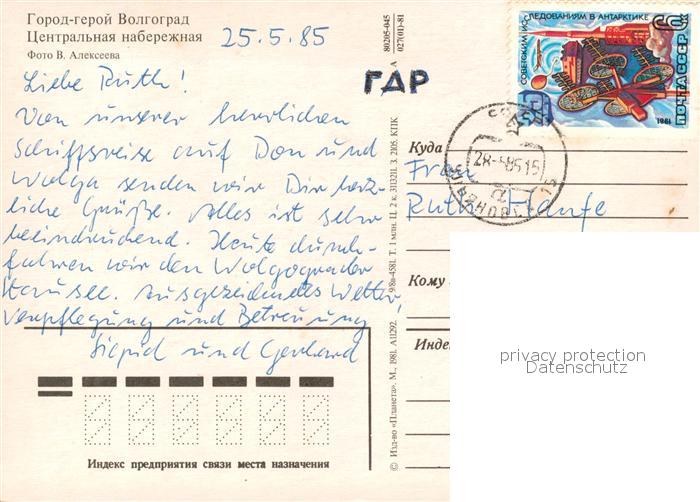 Город-герой Волгоград
Центральная набережная
Фото В. Алексеева
25.5.85
Liebe Ruth!
Von unserer herrlichen
Schiffsreise auf Don und
Wolga senden wir Dir herz-
liche Grüße. Alles ist sehr
beeindruckend. Heute durch-
fahren wir den Wolgograder
Stausee. Ausgezeichnetes Wetter,
Verpflegung und Betreuung
und Gerhard
Индекс предприятия связи места назначения
80205-045
А 027(01)-81
© Изд-во «Планета». М., 1981. А11292. Т. 1 млн. Ц. 2 к. З. 2105. КПК
ГДР
СОВЕТСКИМ ИССЛЕДОВАНИЯМ В АНТАРКТИКЕ
ПОЧТА СССР
1981
Куда
Frau
Ruth Haufe
Кому
Индекс
privacy protection
Datenschutz